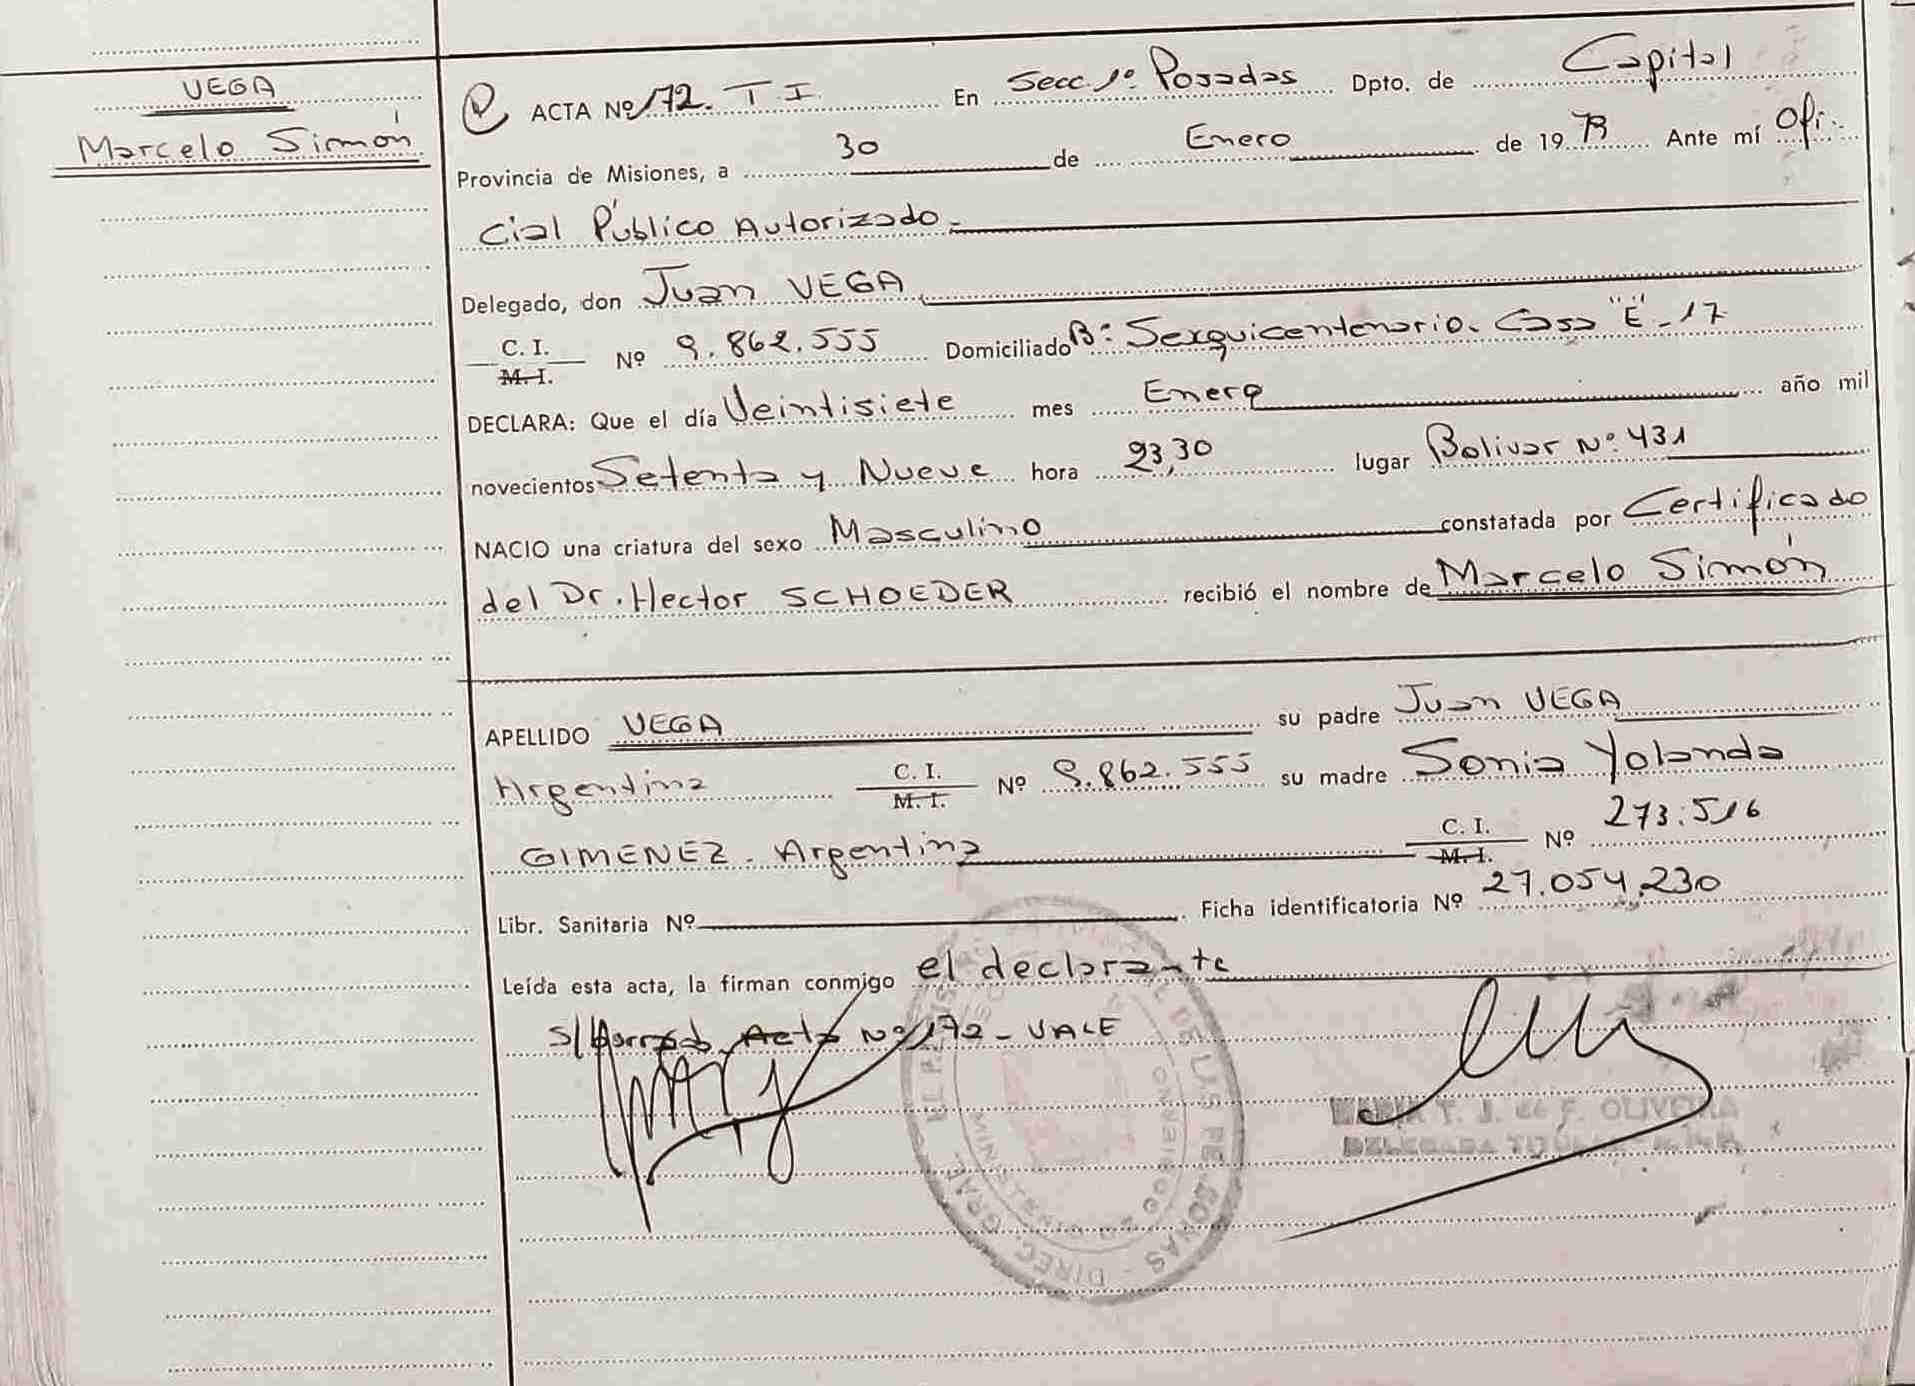 VEGA
Marcelo Simón
ACTA Nº 172. T.I. En Secc. 1º Posadas Dpto. de Capital
Provincia de Misiones, a 30 de Enero de 1979 Ante mí Ofi-
cial Público Autorizado.
Delegado, don Juan VEGA
C. I. M. I. Nº 9.862.555 Domiciliado Bº Sexquicentenario. Casa "E" - 17
DECLARA: Que el día Veintisiete mes Enero año mil
novecientos Setenta y Nueve hora 23,30 lugar Bolivar Nº 431
NACIO una criatura del sexo Masculino constatada por Certificado
del Dr. Hector SCHOEDER recibió el nombre de Marcelo Simón
APELLIDO VEGA su padre Juan VEGA
Argentina C. I. M. I. Nº 9.862.555 su madre Sonia Yolanda
GIMENEZ - Argentina C. I. M. I. Nº 273.516
Libr. Sanitaria Nº Ficha identificatoria Nº 27.054.230
Leída esta acta, la firman conmigo el declarante
s/ Borrado Acta Nº 172 - VALE
T. J. de F. OLIVEIRA
DELEGADA
DIREC. GRAL. DE LAS PERSONAS
GOBIERNO